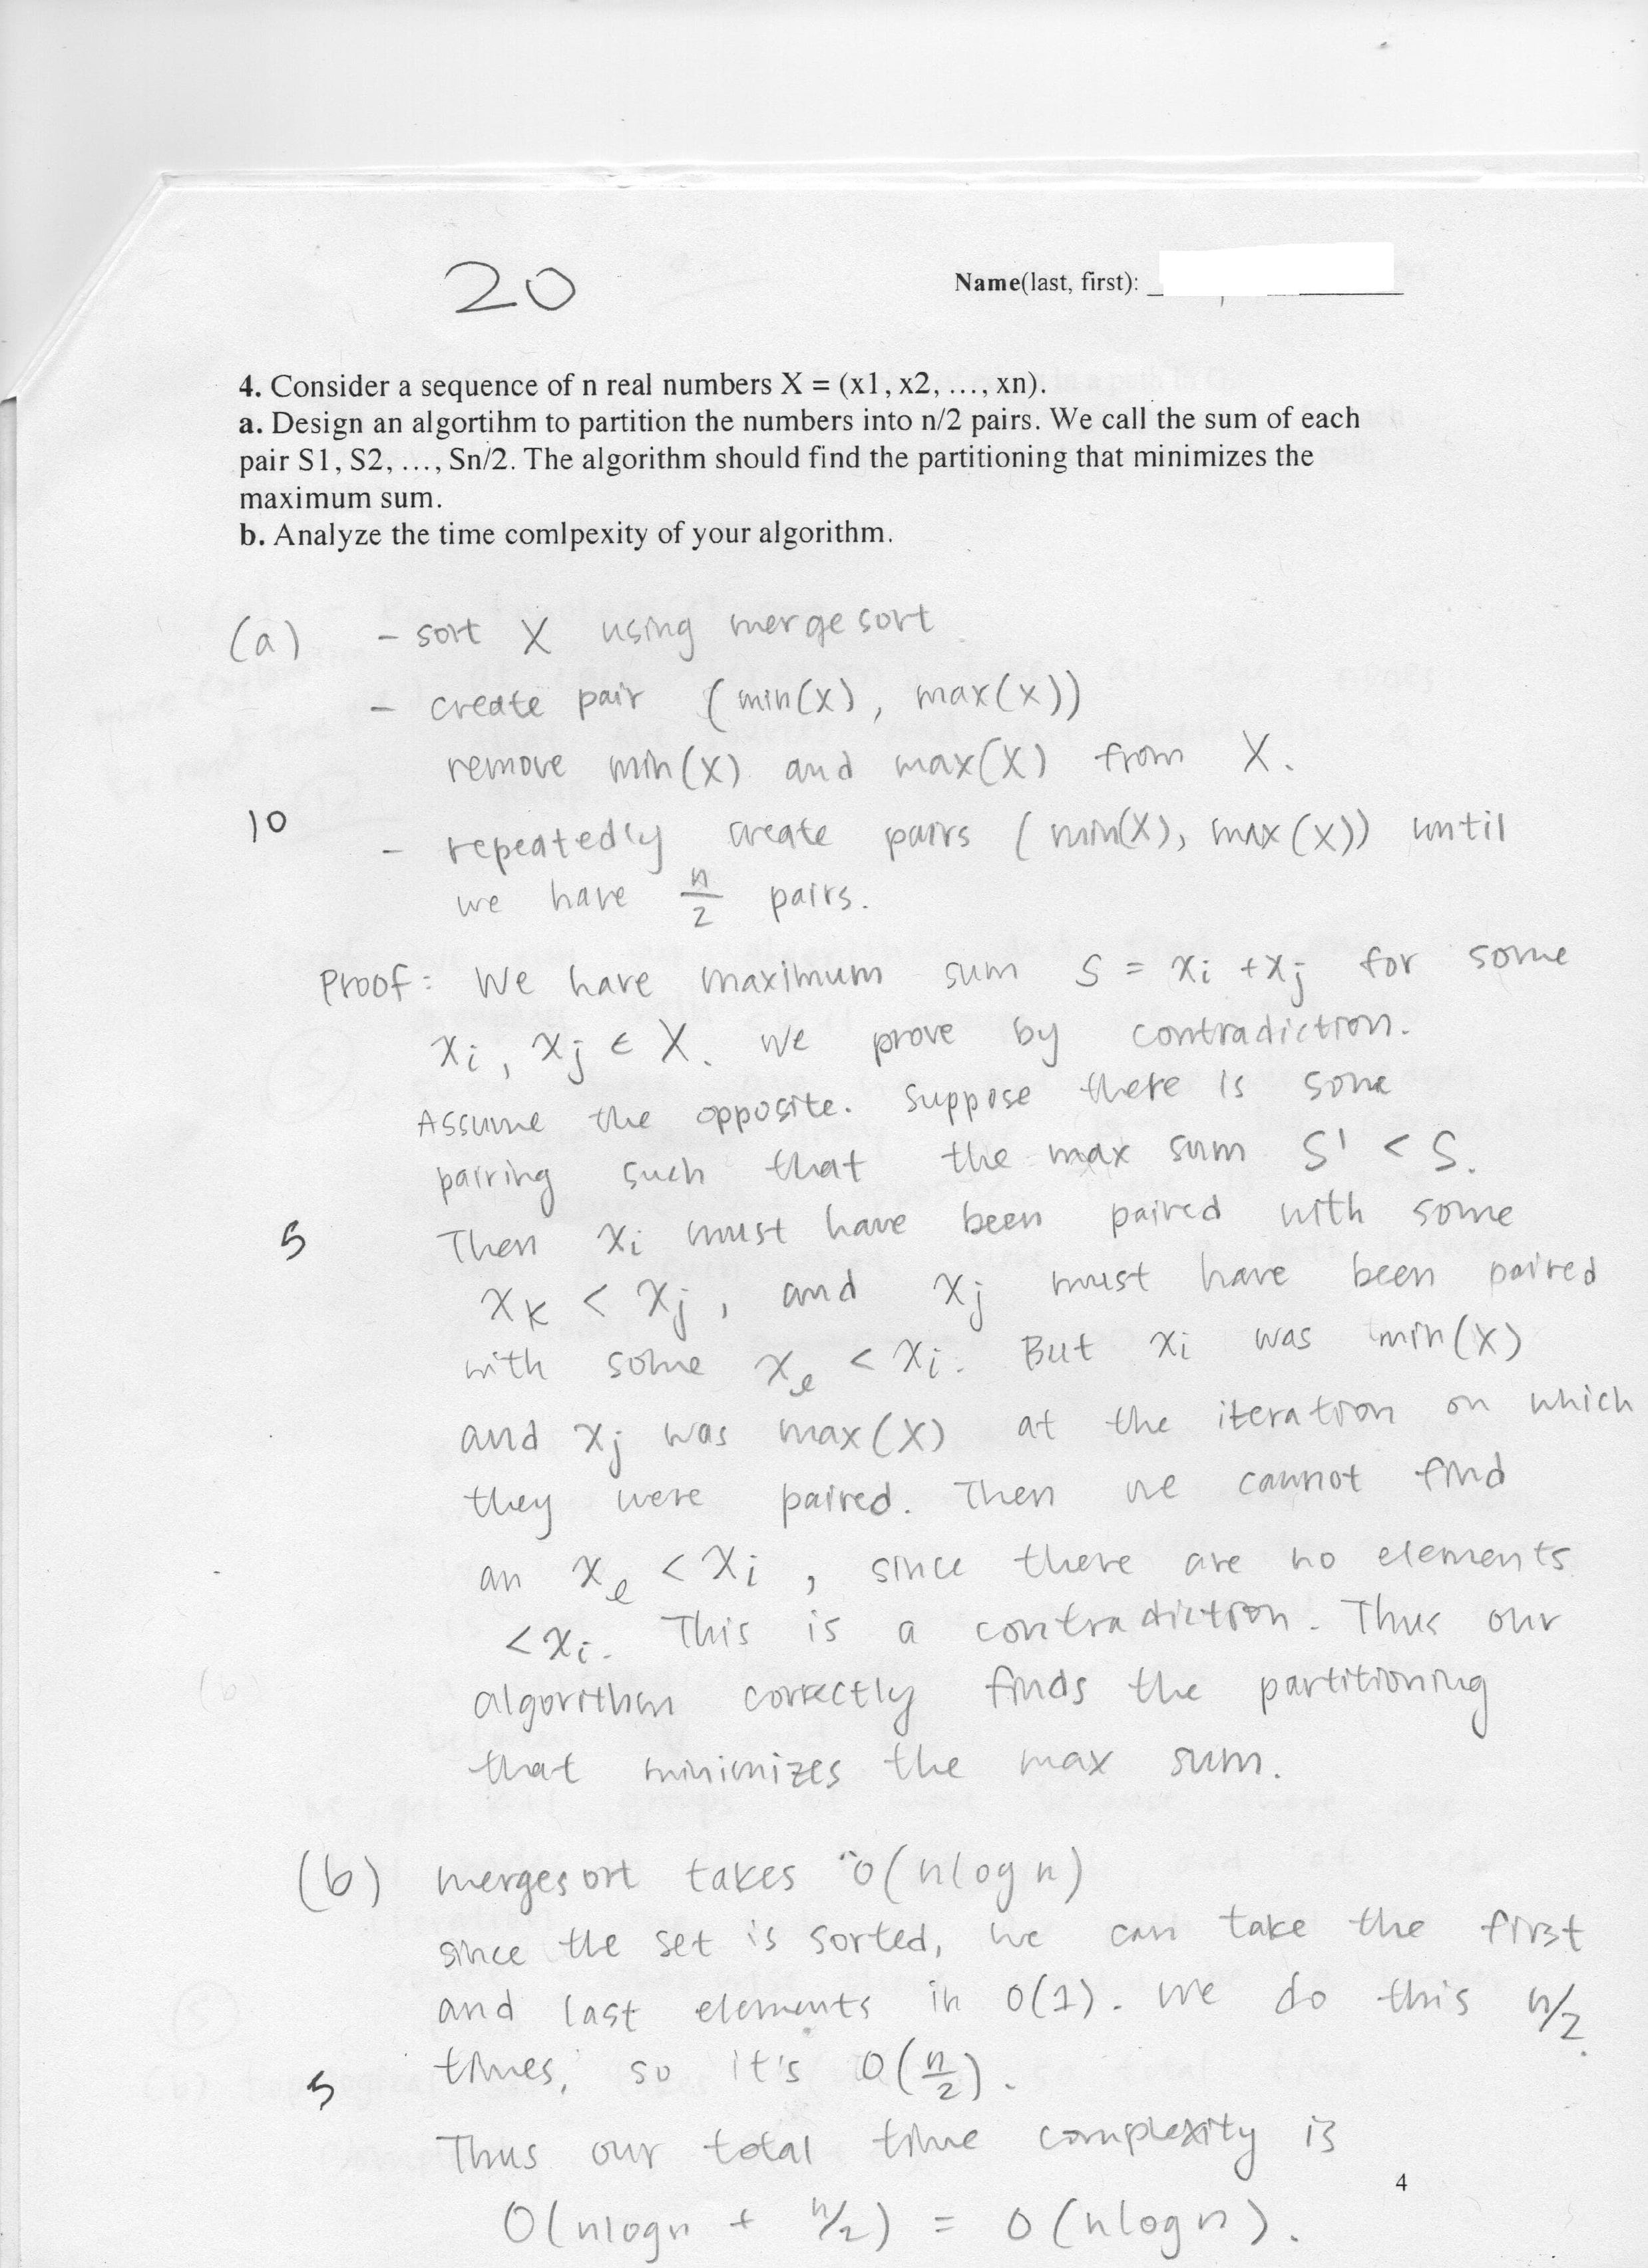 20
Name(last, first):
4. Consider a sequence of n real numbers X = (x1, x2, ..., xn).
a. Design an algortihm to partition the numbers into n/2 pairs. We call the sum of each
pair S1, S2, ..., Sn/2. The algorithm should find the partitioning that minimizes the
maximum sum.
b. Analyze the time comlpexity of your algorithm.
(a) - sort X using mergesort
- create pair (min(x), max(x))
remove min(x) and max(X) from X.
10
- repeatedly create pairs (min(X), max(X)) until
we have n/2 pairs.
Proof: We have maximum sum S = xi + xj for some
xi, xj ∈ X. We prove by contradiction.
Assume the opposite. Suppose there is some
pairing such that the max sum S' < S.
5
Then xi must have been paired with some
xk < xj, and xj must have been paired
with some xe < xi. But xi was min(X)
and xj was max(X) at the iteration on which
they were paired. Then we cannot find
an xe < xi, since there are no elements
< xi. This is a contradiction. Thus our
algorithm correctly finds the partitioning
that minimizes the max sum.
(b) mergesort takes O(nlogn)
since the set is sorted, we can take the first
and last elements in O(1). We do this n/2
times, so it's O(n/2).
5
Thus our total time complexity is
4
O(nlogn + n/2) = O(nlogn).